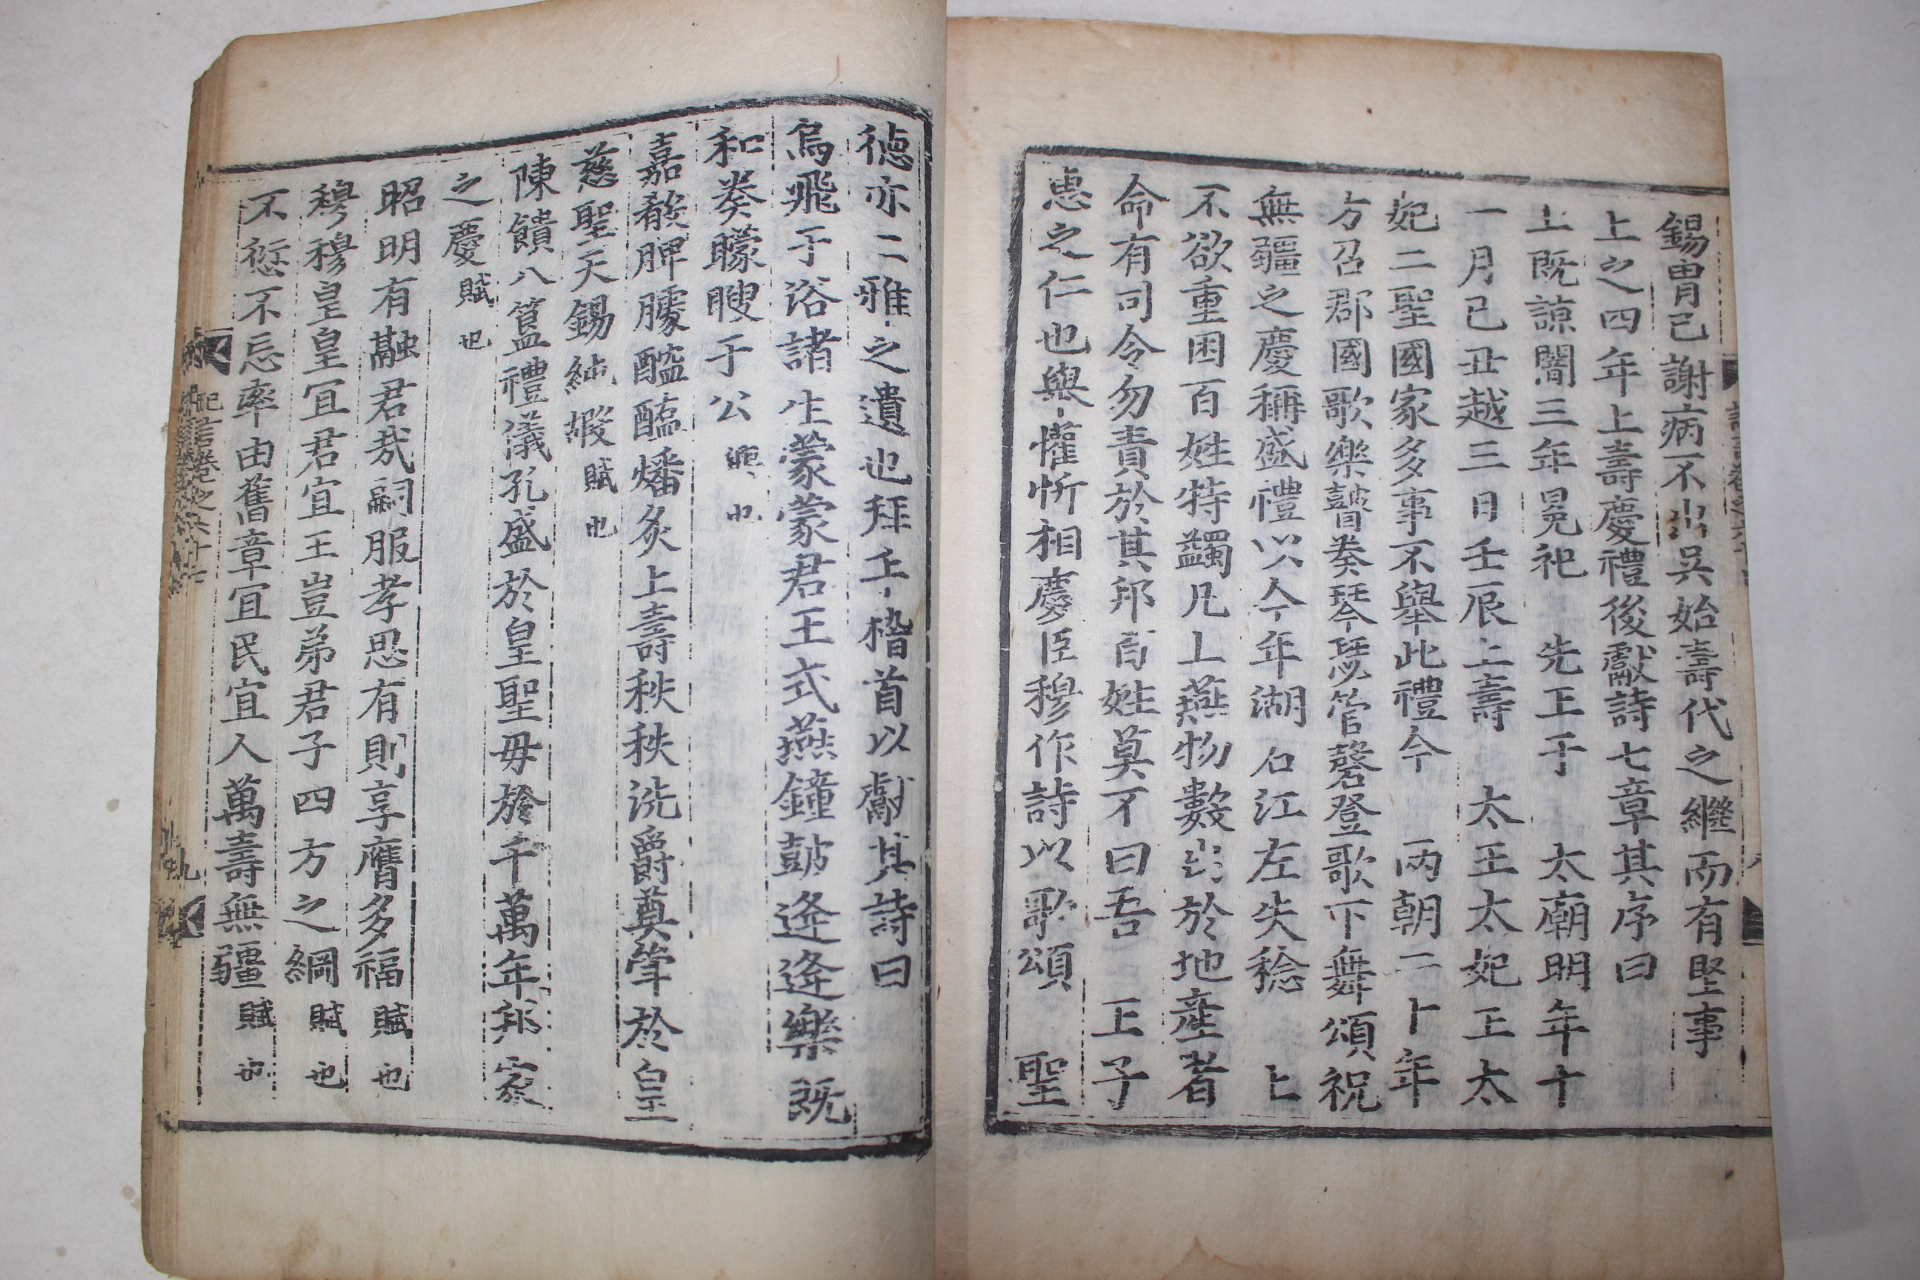 錫胄已謝病不出吳始壽代之繼而有堅事
上之四年上壽慶禮後獻詩七章其序曰
上旣諒闇三年冕祀 先王于 太廟明年十
一月己丑越三日壬辰上壽 太王太妃王太
妃二聖國家多事不舉此禮今 兩朝二十年
方召郡國歌樂瞽奏琴瑟管磬登歌下舞頌祝
無疆之慶稱盛禮以今年湖右江左失稔 上
不欲重困百姓特蠲凡上燕物數出於地産者
命有司令勿責於其邦百姓莫不曰吾 王子
惠之仁也與懽忻相慶臣穆作詩以歌頌 聖
德亦二雅之遺也拜手稽首以獻其詩曰
鳥飛于浴諸生蒙蒙君王式燕鐘鼓逄逄樂旣
和奏矇瞍于公 也
嘉殽脾臄醓醢燔炙上壽秩秩洗爵奠斝於皇
慈聖天錫純嘏 賦也
陳饋八簋禮儀孔盛於皇聖母於千萬年邦家
之慶 賦也
昭明有融君哉嗣服孝思有則享膺多福 賦也
穆穆皇皇宜君宜王豈弟君子四方之綱 賦也
不愆不忘率由舊章宜民宜人萬壽無疆 賦也
記言卷之六十
九